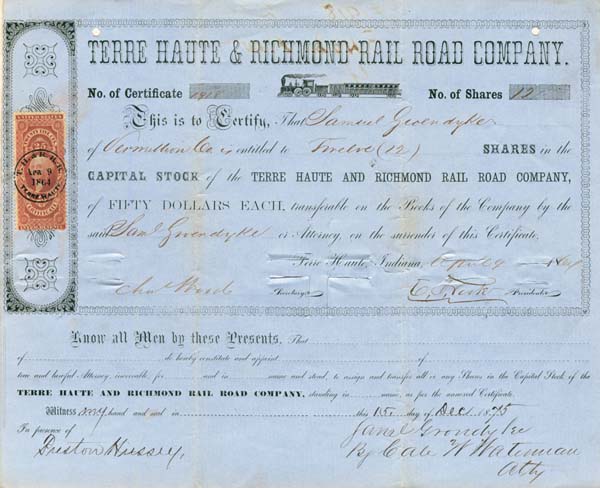 TERRE HAUTE & RICHMOND RAIL ROAD COMPANY.
No. of Certificate 1918 No. of Shares 12
This is to Certify, That Samuel Groendyke
of Vermillion Co is entitled to Twelve (12) SHARES in the
CAPITAL STOCK of the TERRE HAUTE AND RICHMOND RAIL ROAD COMPANY,
of FIFTY DOLLARS EACH, transferable on the Books of the Company by the
said Saml Groendyke or Attorney, on the surrender of this Certificate.
Terre Haute, Indiana, April 9 1864
Chas Wood Secretary. President.
UNITED STATES
25
T. H. & R. R. R.
APR 9
1864
TERRE HAUTE
CERTIFICATE
Know all Men by these Presents, That
of do hereby constitute and appoint of
true and lawful Attorney, irrevocable, for and in name and stead, to assign and transfer all or any Shares in the Capital Stock of the
TERRE HAUTE AND RICHMOND RAIL ROAD COMPANY, standing in name, as per the annexed Certificate.
Witness my hand and seal in this 15 day of Dec 1875
In presence of
Preston Hussey,
By W Waterman
Atty